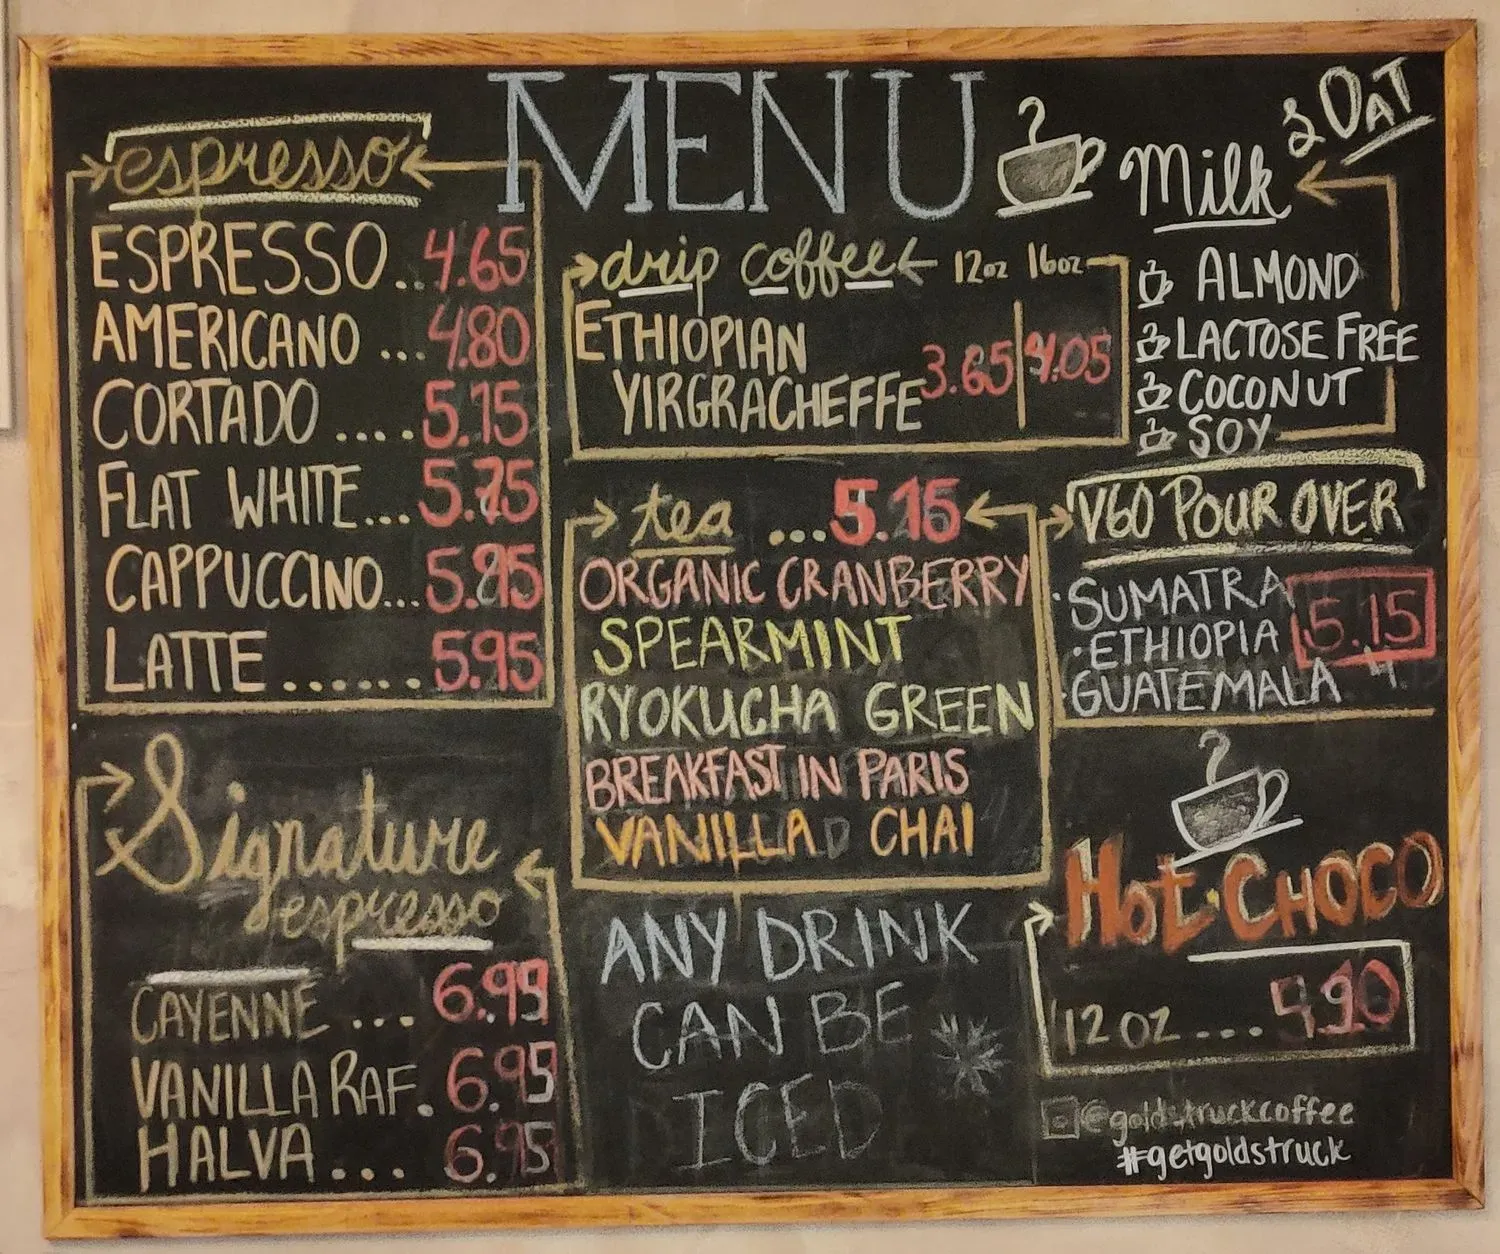 MENU
espresso
ESPRESSO..4.65
AMERICANO ...4.80
CORTADO ....5.15
FLAT WHITE...5.75
CAPPUCCINO...5.85
LATTE ......5.95
Signature
espresso
CAYENNE ... 6.95
VANILLA RAF. 6.95
HALVA ... 6.95
drip coffee 12oz 16oz
ETHIOPIAN
YIRGRACHEFFE 3.65 4.05
tea ...5.15
ORGANIC CRANBERRY
SPEARMINT
RYOKUCHA GREEN
BREAKFAST IN PARIS
VANILLA CHAI
ANY DRINK
CAN BE
ICED
Milk & OAT
ALMOND
LACTOSE FREE
COCONUT
SOY
V60 POUR OVER
·SUMATRA
·ETHIOPIA 5.15
·GUATEMALA
Hot·CHOCO
12 OZ ...
@goldstruckcoffee
#getgoldstruck